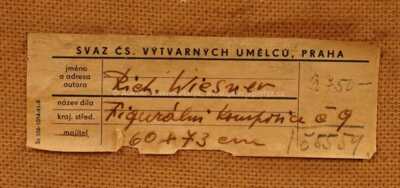 SVAZ ČS. VÝTVARNÝCH UMĚLCŮ, PRAHA
jméno
a adresa
autora
Rich. Wiesner
3750-
název díla
kraj. střed.
majitel
Figurální kompozice č 9
60x73 cm